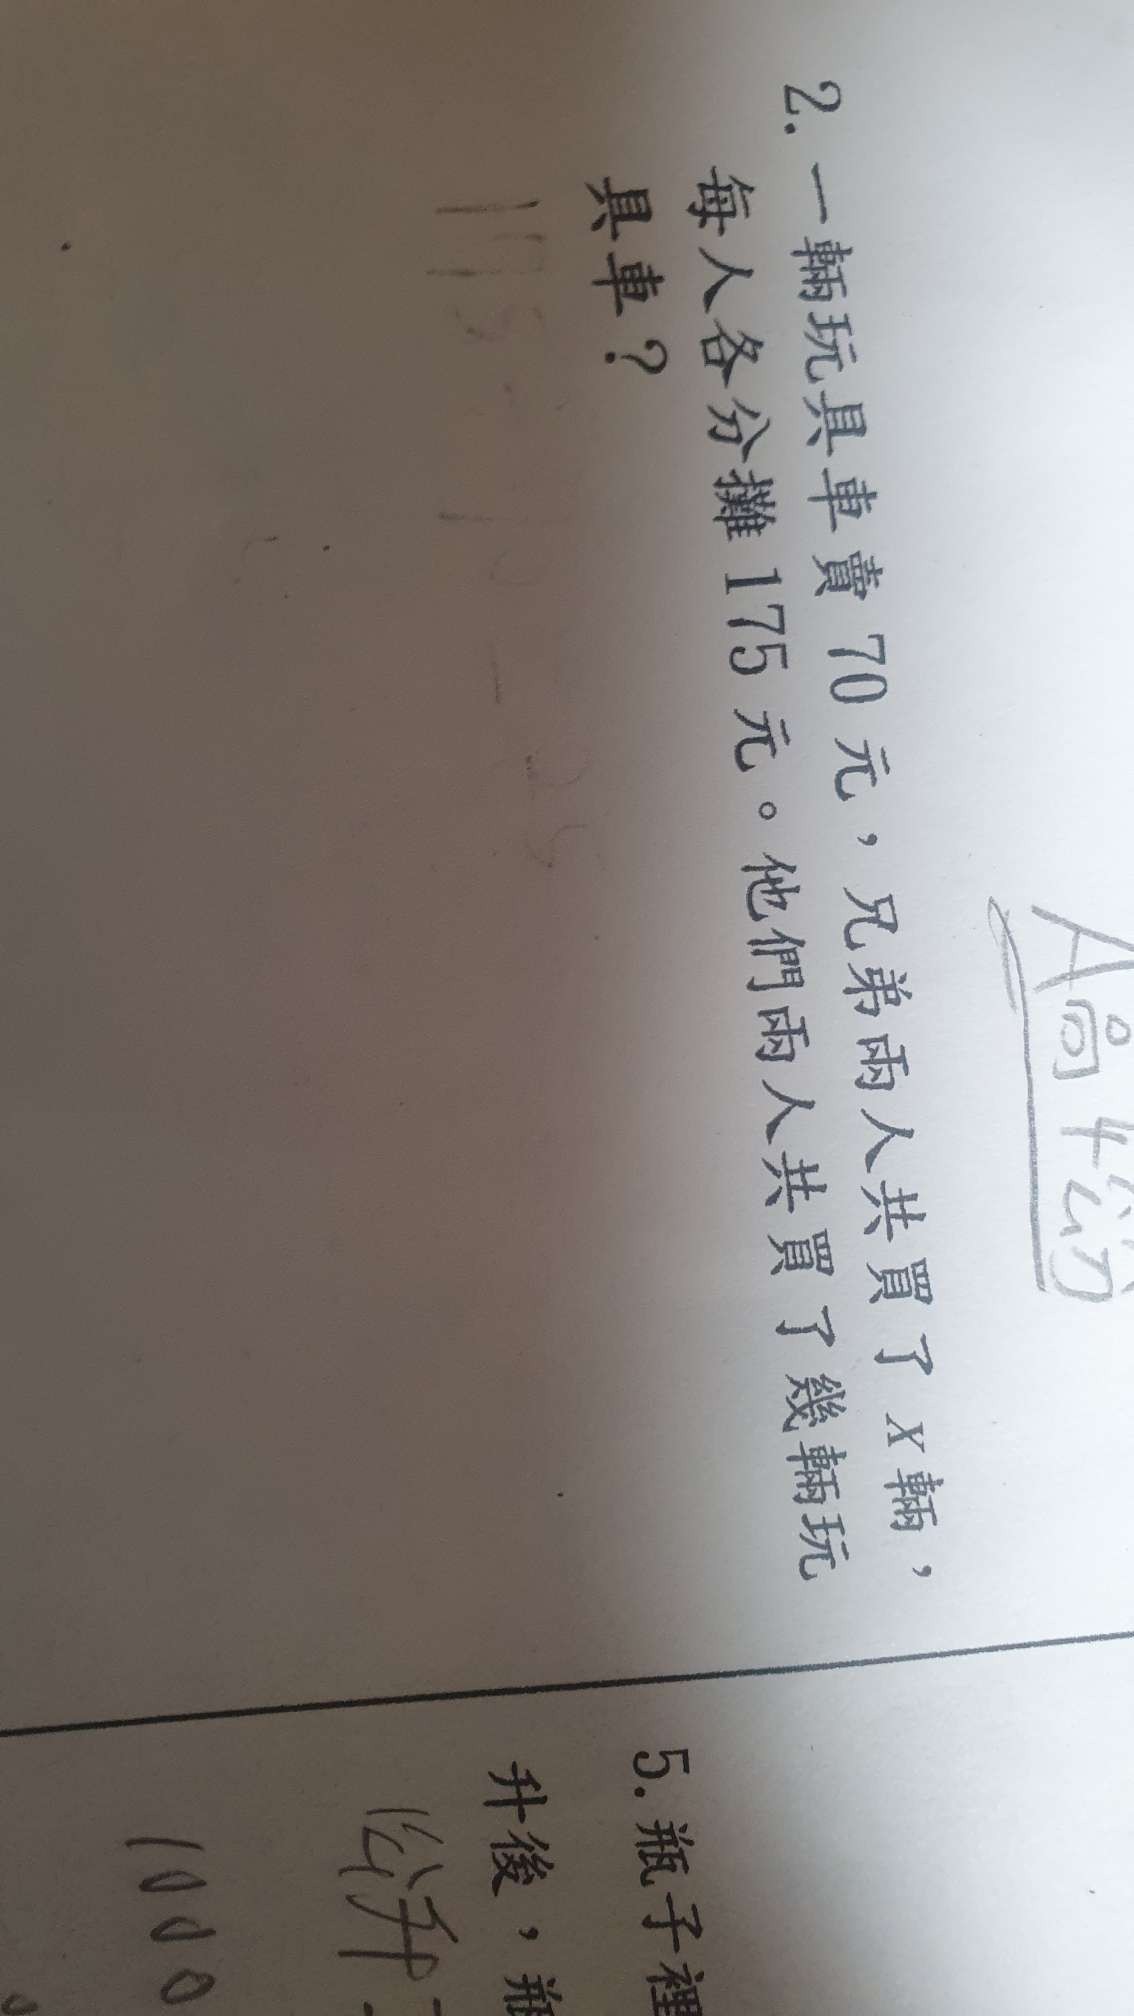 2. 一輛玩具車賣 70 元，兄弟兩人共買了 x 輛，
每人各分攤 175 元。他們兩人共買了幾輛玩
具車？
5. 瓶子裡
升後，瓶
公升
1000